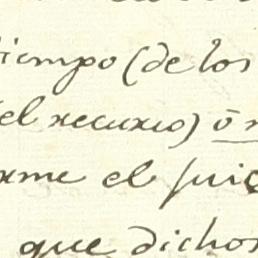 tiempo (de los
el recurso) ō n
rme el juic
que dichos